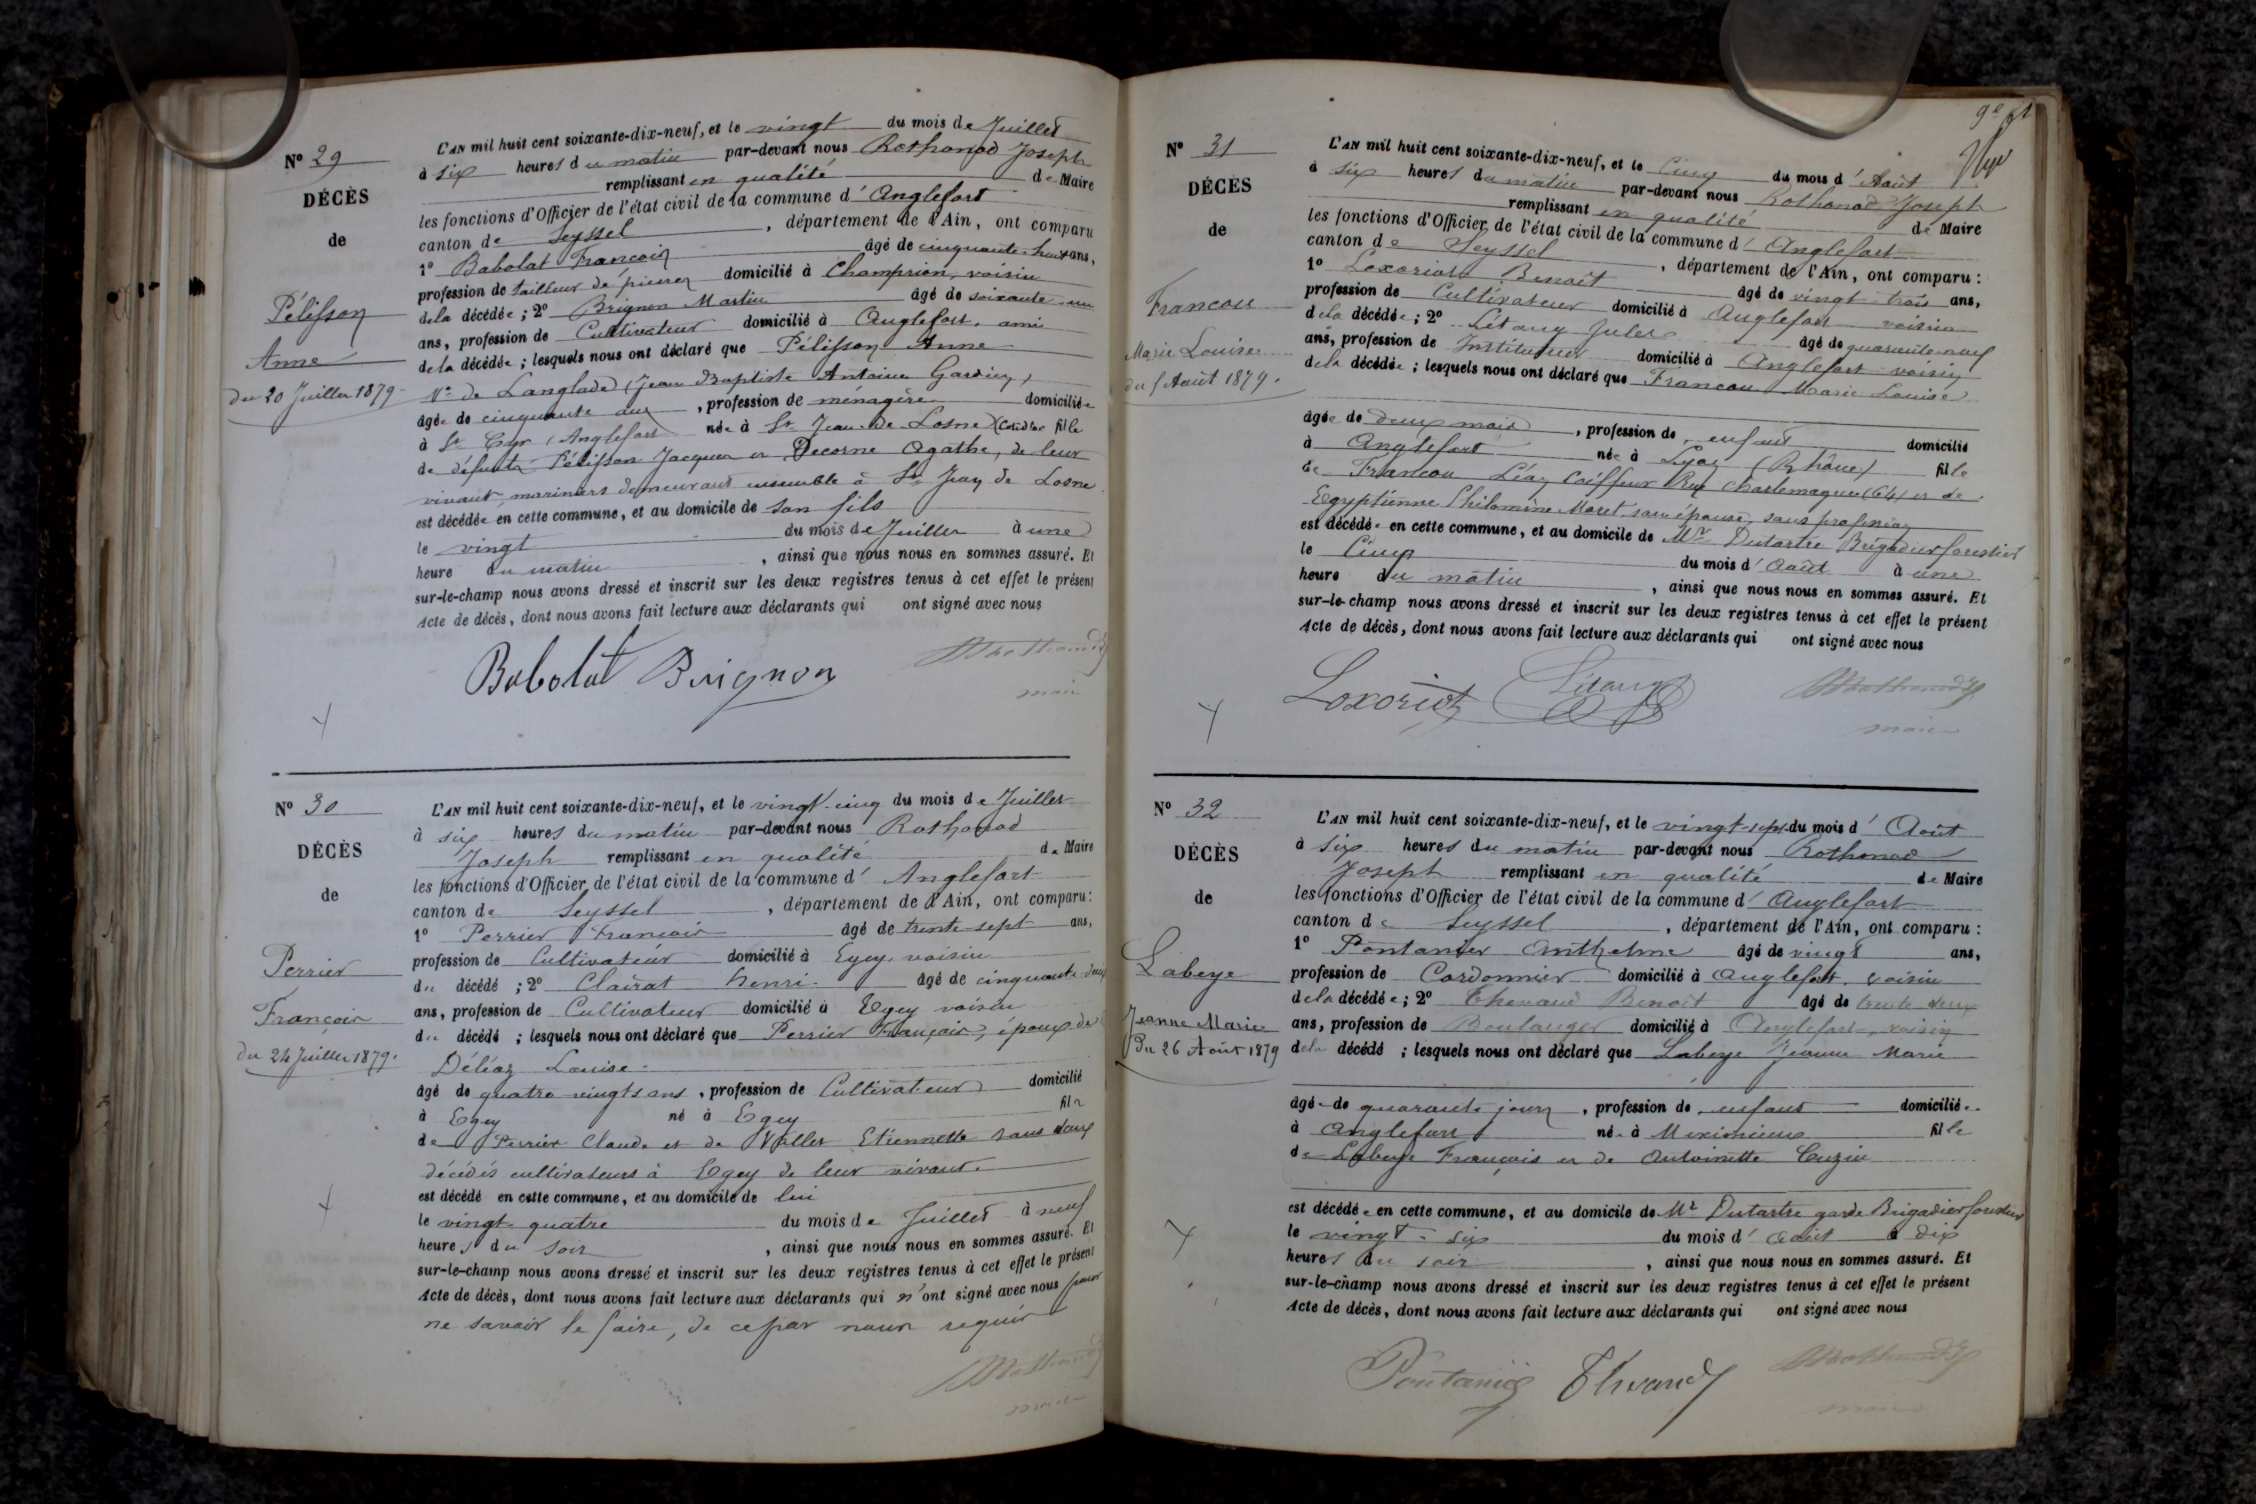 Nº 29
DÉCÈS
de
Pélisson
Anne
du 20 Juillet 1879
L'AN mil huit cent soixante-dix-neuf, et le vingt du mois de Juillet
à six heures du matin par-devant nous Rothonod Joseph
remplissant en qualité de Maire
les fonctions d'Officier de l'état civil de la commune d'Anglefort
canton de Seyssel, département de l'Ain, ont comparu
1º Babolat François âgé de cinquante-huit ans,
profession de tailleur de pierres domicilié à Champrion, voisin
de la décédée; 2º Brignon Martin âgé de soixante un
ans, profession de Cultivateur domicilié à Anglefort, ami
de la décédée; lesquels nous ont déclaré que Pélisson Anne
Vve de Langlade (Jean Baptiste Antoine
âgée de cinquante, profession de ménagère domiciliée
à St Cyr (Anglefort née à St Jean de Losne fille
de défunts Pélisson Jacques et Decorne Agathe, de leur
vivant, mariniers demeurant ensemble à St Jean de Losne
est décédée en cette commune, et au domicile de son fils
le vingt du mois de Juillet à une
heure du matin, ainsi que nous nous en sommes assuré. Et
sur-le-champ nous avons dressé et inscrit sur les deux registres tenus à cet effet le présent
Acte de décès, dont nous avons fait lecture aux déclarants qui ont signé avec nous
Babolat Brignon
maire
Nº 30
DÉCÈS
de
Perrier
François
du 24 Juillet 1879.
L'AN mil huit cent soixante-dix-neuf, et le vingt-cinq du mois de Juillet
à six heures du matin par-devant nous Rothonod
Joseph remplissant en qualité de Maire
les fonctions d'Officier de l'état civil de la commune d'Anglefort
canton de Seyssel, département de l'Ain, ont comparu:
1º Perrier François âgé de trente-sept ans,
profession de Cultivateur domicilié à Egey, voisin
du décédé; 2º Clairat henri âgé de cinquante-deux
ans, profession de Cultivateur domicilié à Egey voisin
du décédé; lesquels nous ont déclaré que Perrier François, époux de
Déléaz Louise.
âgé de quatre vingts ans, profession de Cultivateur domicilié
à Egey né à Egey fils
de Perrier Claude et de Vallet Etiennette tous deux
décédés cultivateurs à Egey de leur vivant.
est décédé en cette commune, et au domicile de lui
le vingt quatre du mois de Juillet à neuf
heures du soir, ainsi que nous nous en sommes assuré. Et
sur-le-champ nous avons dressé et inscrit sur les deux registres tenus à cet effet le présent
Acte de décès, dont nous avons fait lecture aux déclarants qui n'ont signé avec nous pour
ne savoir le faire, de ce par nous requis
Nº 31
DÉCÈS
de
Francou
Marie Louise
du 5 Août 1879.
L'AN mil huit cent soixante-dix-neuf, et le Cinq du mois d'Août
à six heures du matin par-devant nous Rothonod Joseph
remplissant en qualité de Maire
les fonctions d'Officier de l'état civil de la commune d'Anglefort
canton de Seyssel, département de l'Ain, ont comparu:
1º Loxoriot Benoit âgé de vingt-trois ans,
profession de Cultivateur domicilié à Anglefort voisin
de la décédée; 2º Létang Jules âgé de quarante-neuf
ans, profession de Instituteur domicilié à Anglefort voisin
de la décédée; lesquels nous ont déclaré que Francou Marie Louise
âgée de deux mois, profession de enfant domicilié
à Anglefort née à Lyon (Rhône) fille
de Francou Léon Coiffeur Rue Charlemagne (64) et de
Egyptienne Philomène Moret son épouse, sans profession
est décédée en cette commune, et au domicile de Mr Dutartre Brigadier forestier
le Cinq du mois d'Août à une
heure du matin, ainsi que nous nous en sommes assuré. Et
sur-le-champ nous avons dressé et inscrit sur les deux registres tenus à cet effet le présent
Acte de décès, dont nous avons fait lecture aux déclarants qui ont signé avec nous
Loxoriot Létang
maire
Nº 32
DÉCÈS
de
Labeye
Jeanne Marie
Du 26 Août 1879
L'AN mil huit cent soixante-dix-neuf, et le vingt-sept du mois d'Août
à six heures du matin par-devant nous Rothonod
Joseph remplissant en qualité de Maire
les fonctions d'Officier de l'état civil de la commune d'Anglefort
canton de Seyssel, département de l'Ain, ont comparu:
1º Pontanier Anthelme âgé de vingt ans,
profession de Cordonnier domicilié à Anglefort, voisin
de la décédée; 2º Thevand Benoit âgé de trente deux
ans, profession de Boulanger domicilié à Anglefort, voisin
de la décédé; lesquels nous ont déclaré que Labeye Jeanne Marie
âgé de quarante jours, profession de enfant domiciliée
à Anglefort née à Meximieux fille
de Labeye François et de Antoinette Cuzin
est décédée en cette commune, et au domicile de Mr Dutartre garde Brigadier forestier
le vingt-six du mois d'août à dix
heures du soir, ainsi que nous nous en sommes assuré. Et
sur-le-champ nous avons dressé et inscrit sur les deux registres tenus à cet effet le présent
Acte de décès, dont nous avons fait lecture aux déclarants qui ont signé avec nous
Pontanier Thevand
maire